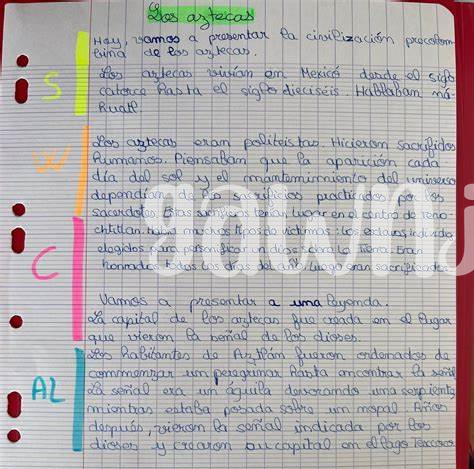 Los aztecas
Hoy, vamos a presentar la civilización precolom-
bina de los aztecas.
S
Los aztecas vivían en Mexicó desde el siglo
catorce hasta el siglo dieciséis. Hablaban ná-
huatl
W
Los aztecas eran politeistas. Hicieron sacrificios
humanos. Piensaban que la aparición cada
día del sol y el mantenimiento del universo
dependían de los sacrificios practicados por los
sacerdotes. Estas tenían lugar en el centro de Teno-
chtitlan. Había muchos tipos de víctimas: los esclavos,
elegidos para personificar un dios sobre la Tierra. Eran
honrados todos los días del luego eran sacrificados
C
Vamos a presentar a una leyenda.
La capital de los aztecas fue creada en el lugar
que vieron la señal de los dioses.
AL
Los habitantes de Aztlán fueron ordenados de
commenzar un peregrinar hasta encontrar la señal
La señal era un águila devorando una serpiente
mientras estaba posada sobre un nopal. Años
después, vieron la señal indicada por los
dioses y crearon su capital en el lago Texcoco.
gawnj